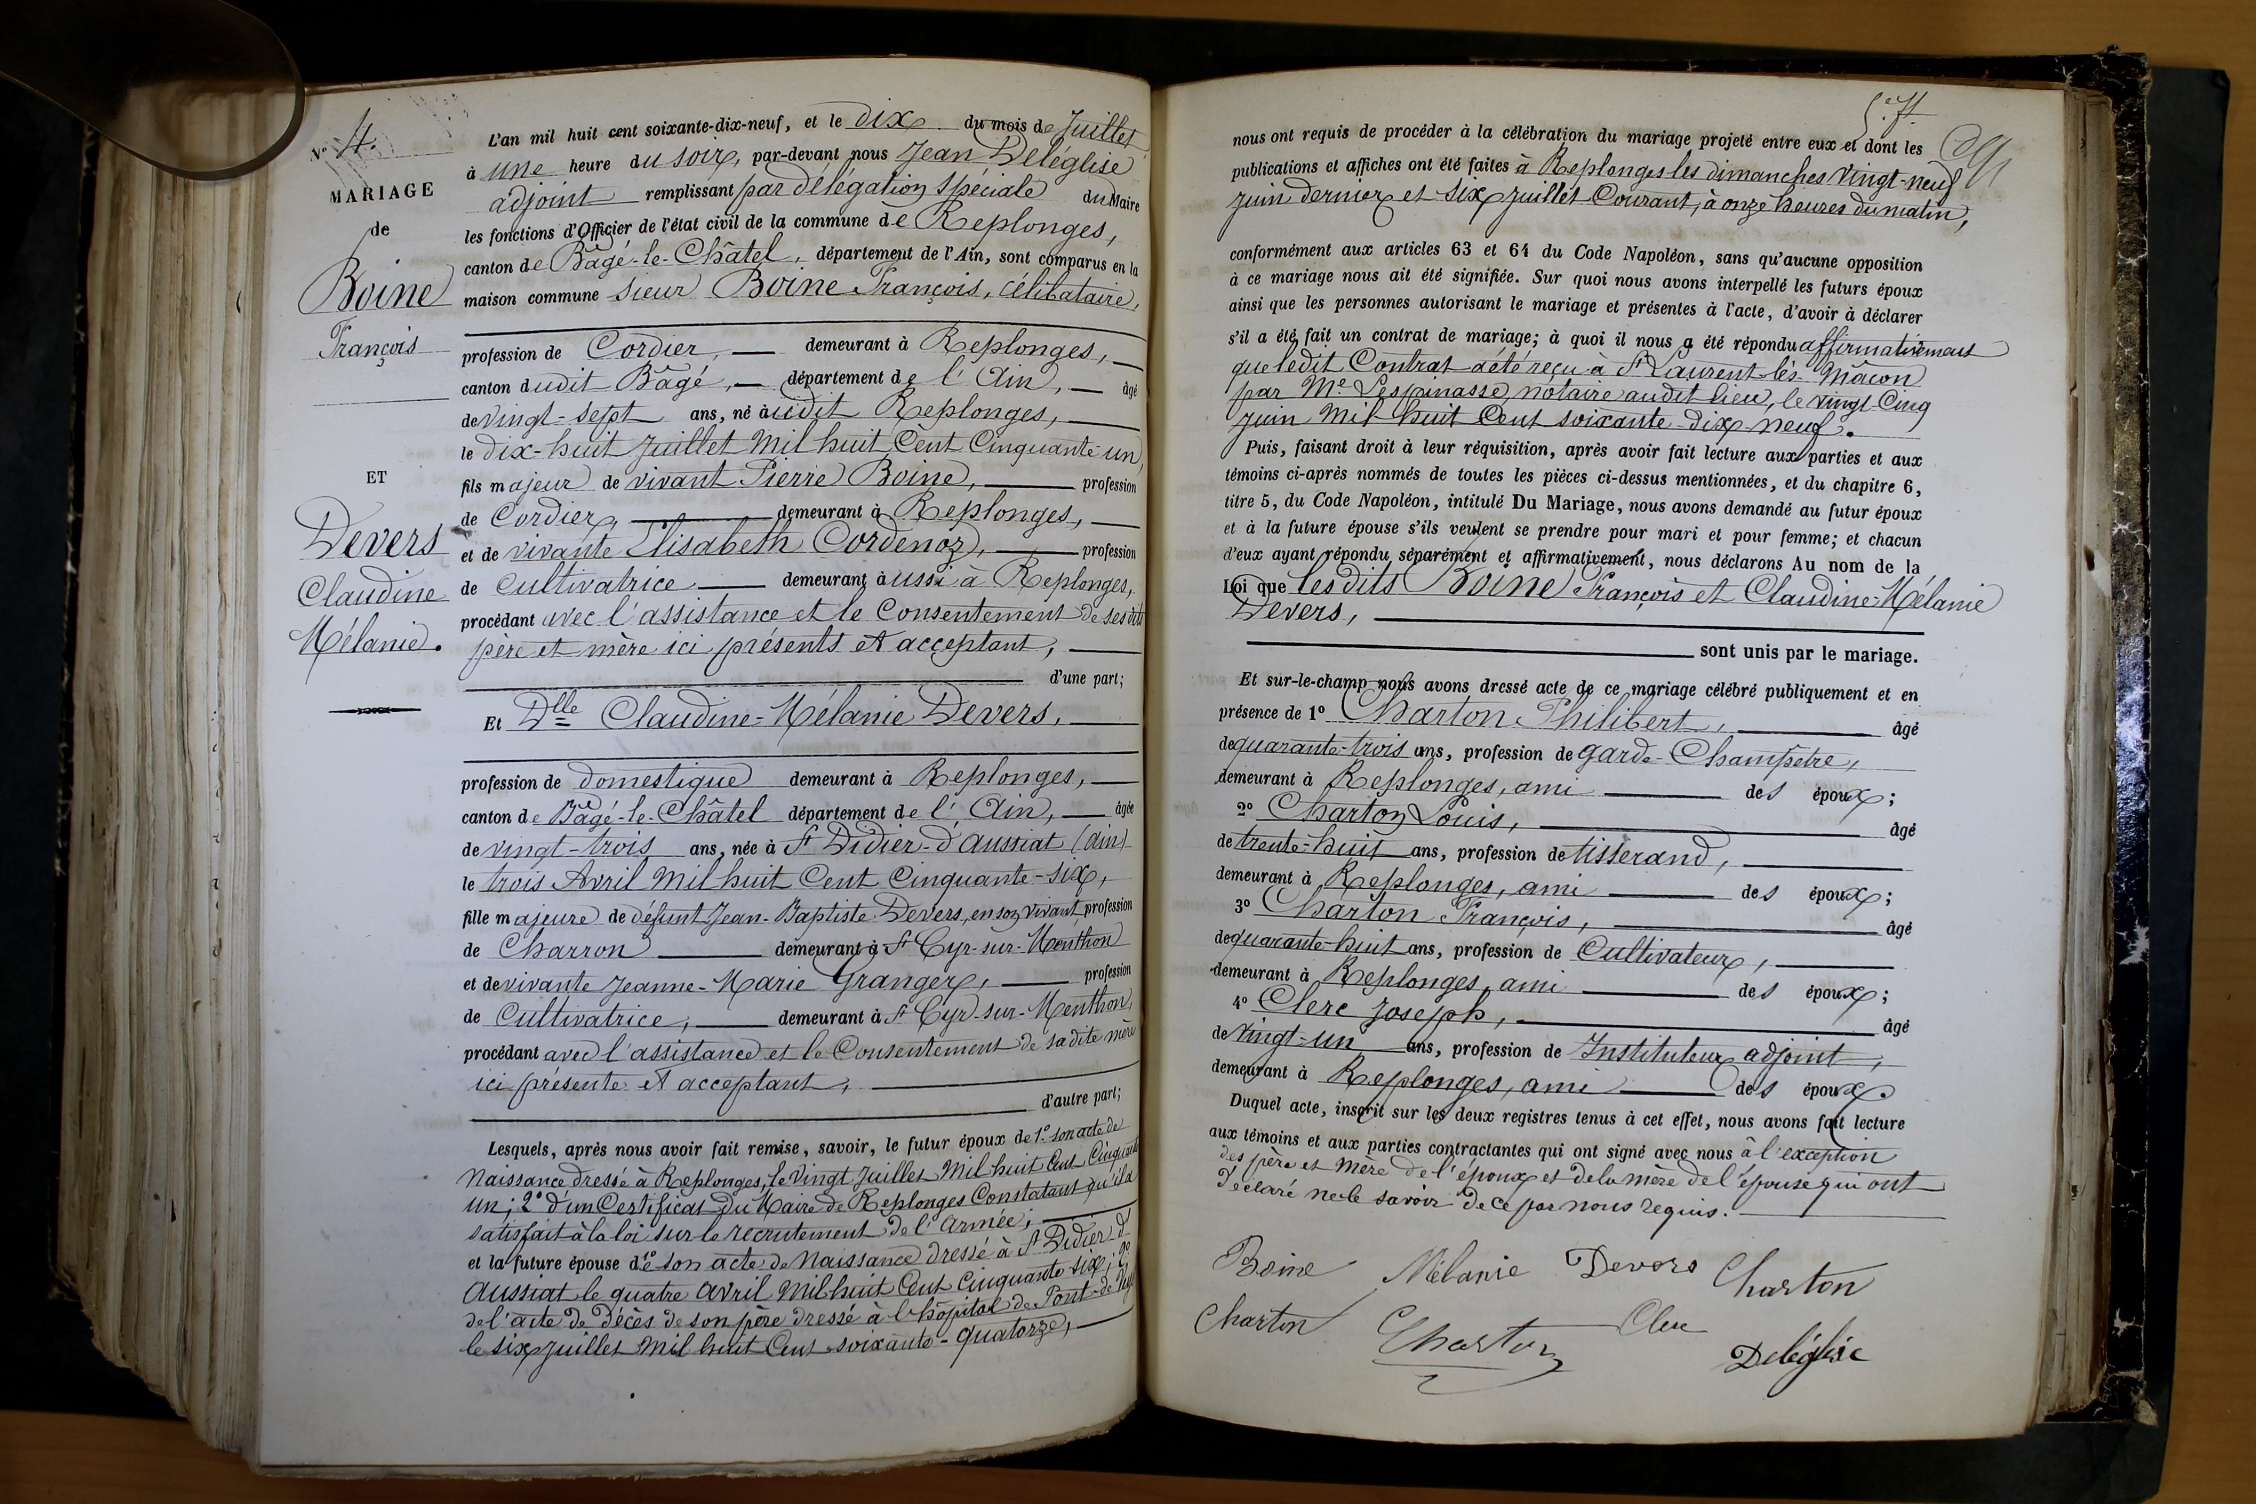 N° 4.
MARIAGE
de
Boine
François
ET
Devers
Claudine
Mélanie.
L'an mil huit cent soixante-dix-neuf, et le dix du mois de Juillet
à une heure du soir, par-devant nous Jean Deléglise
adjoint remplissant par délégation spéciale du Maire
les fonctions d'Officier de l'état civil de la commune de Replonges,
canton de Bâgé-le-Châtel, département de l'Ain, sont comparus en la
maison commune sieur Boine François, célibataire,
profession de Cordier, demeurant à Replonges,
canton dudit Bâgé, département de l'Ain, âgé
de vingt-sept ans, né àudit Replonges,
le dix-huit Juillet mil huit Cent Cinquante-un,
fils majeur de vivant Pierre Boine, profession
de Cordier, demeurant à Replonges,
et de vivante Elisabeth Cordenoz, profession
de Cultivatrice demeurant àussi à Replonges,
procédant avec l'assistance et le Consentement de ses dits
père et mère ici présents et acceptant,
d'une part;
Et Dlle Claudine-Mélanie Devers,
profession de domestique demeurant à Replonges,
canton de Bâgé-le-Châtel département de l'Ain, âgée
de vingt-trois ans, née à St Didier-d'Aussiat (Ain)
le trois Avril mil huit Cent Cinquante-six,
fille majeure de défunt Jean-Baptiste Devers, en son vivant profession
de Charron demeurant à St Cyr-sur-Menthon
et de vivante Jeanne-Marie Granger, profession
de Cultivatrice, demeurant à St Cyr-sur-Menthon,
procédant avec l'assistance et le Consentement de sa dite mère
ici présente et acceptant,
d'autre part;
Lesquels, après nous avoir fait remise, savoir, le futur époux de 1° son acte de
Naissance dressé à Replonges, le vingt Juillet mil huit Cent Cinquante
un; 2° d'un Certificat du Maire de Replonges Constatant qu'il a
satisfait à la loi sur le recrutement de l'armée;
et la future épouse de 1° son acte de Naissance dressé à St Didier d'
Aussiat le quatre avril mil huit Cent Cinquante six; 2°
de l'acte de Décès de son père dressé à l'hôpital de Pont-de-Veyle
le six juillet mil huit Cent soixante-quatorze,
nous ont requis de procéder à la célébration du mariage projeté entre eux et dont les
publications et affiches ont été faites à Replonges les dimanches vingt-neuf
juin dernier et six juillet Courant, à onze heures du matin,
conformément aux articles 63 et 64 du Code Napoléon, sans qu'aucune opposition
à ce mariage nous ait été signifiée. Sur quoi nous avons interpellé les futurs époux
ainsi que les personnes autorisant le mariage et présentes à l'acte, d'avoir à déclarer
s'il a été fait un contrat de mariage; à quoi il nous a été répondu affirmativement
que ledit Contrat a été reçu à St Laurent-lès-Mâcon
par Me Lespinasse, notaire audit lieu, le vingt-Cinq
juin mil huit Cent soixante-dix-neuf.
Puis, faisant droit à leur réquisition, après avoir fait lecture aux parties et aux
témoins ci-après nommés de toutes les pièces ci-dessus mentionnées, et du chapitre 6,
titre 5, du Code Napoléon, intitulé Du Mariage, nous avons demandé au futur époux
et à la future épouse s'ils veulent se prendre pour mari et pour femme; et chacun
d'eux ayant répondu séparément et affirmativement, nous déclarons Au nom de la
Loi que lesdits Boine François et Claudine-Mélanie
Devers,
sont unis par le mariage.
Et sur-le-champ nous avons dressé acte de ce mariage célébré publiquement et en
présence de 1° Charton Philibert, âgé
de quarante-trois ans, profession de garde-Champêtre,
demeurant à Replonges, ami des époux;
2° Charton Louis, âgé
de trente-huit ans, profession de tisserand,
demeurant à Replonges, ami des époux;
3° Charton François, âgé
de quarante-huit ans, profession de Cultivateur,
demeurant à Replonges, ami des époux;
4° Clerc Joseph, âgé
de vingt-un ans, profession de Instituteur adjoint,
demeurant à Replonges, ami des époux.
Duquel acte, inscrit sur les deux registres tenus à cet effet, nous avons fait lecture
aux témoins et aux parties contractantes qui ont signé avec nous à l'exception
des père et mère de l'époux et de la mère de l'épouse qui ont
déclaré ne le savoir de ce par nous requis.
Boine Mélanie Devers Charton
Charton Charton Clerc
Deléglise